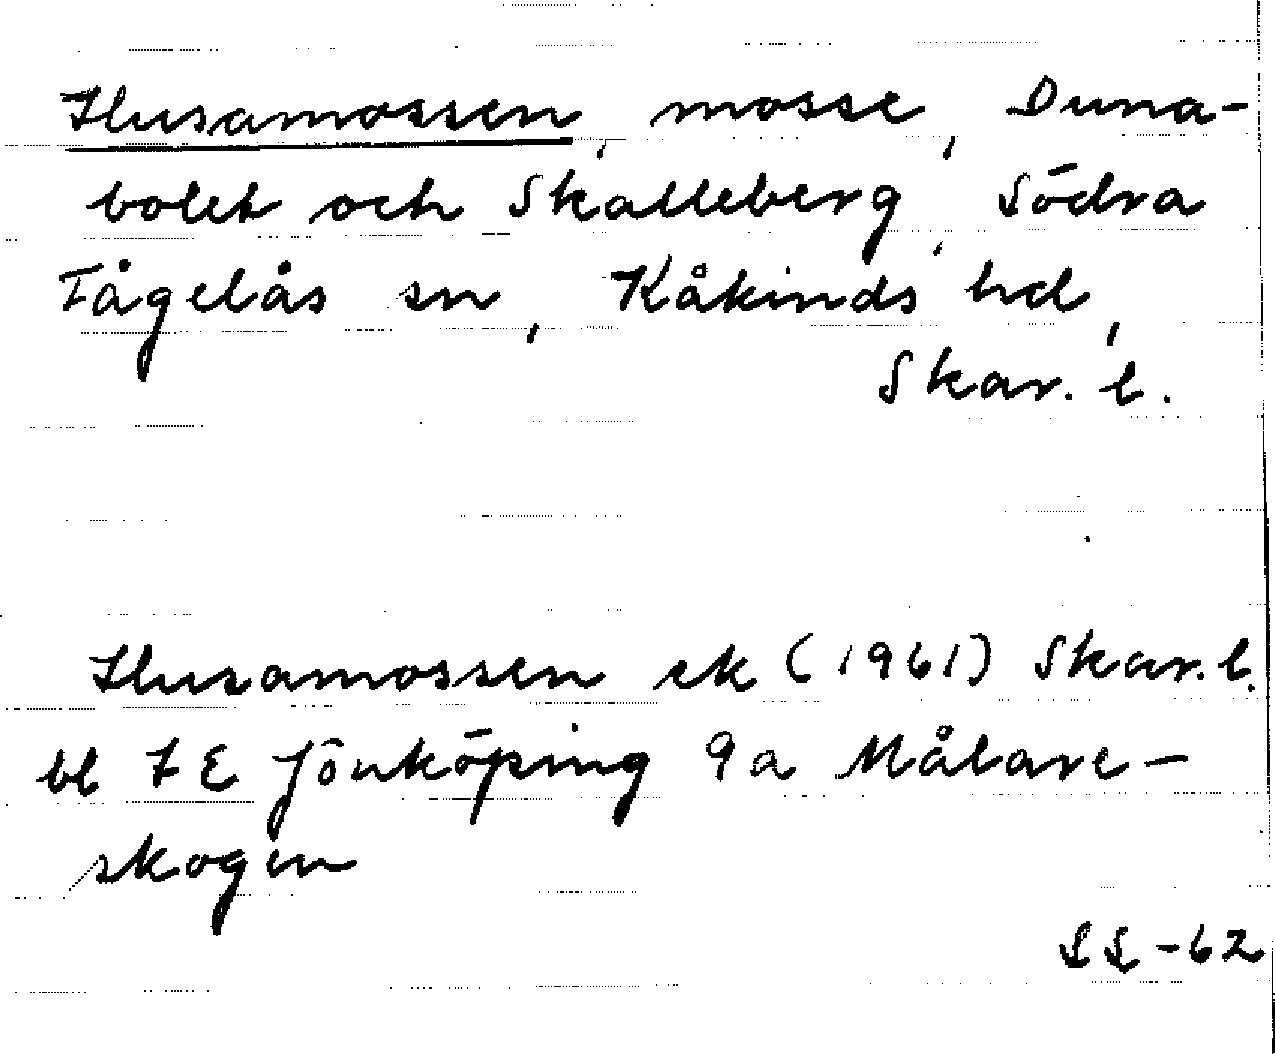 Husamossen, mosse, Duna-
bolet och Skalleberg, Södra
Fågelås sn, Kåkinds hd,
Skar. l.
Husamossen ek (1961) Skar. l.
bl 7 E Jönköping 9a Målare-
skogen
SL-62